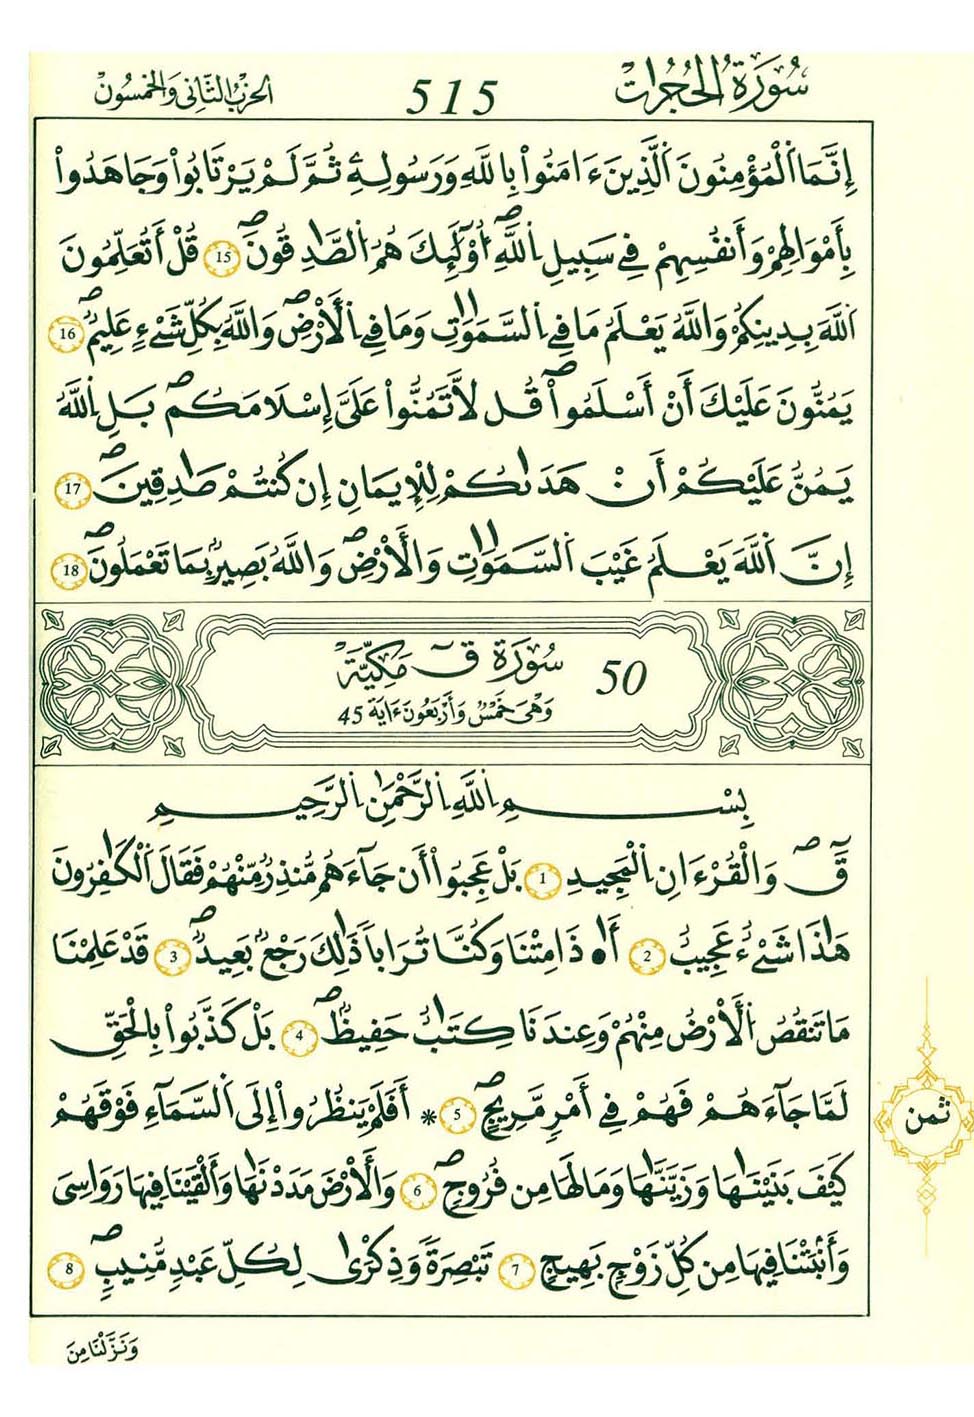 سُورَةُ الْحُجُرَاتْ
515
الحزب الثاني والخمسون
إِنَّمَا اَ۬لْمُؤْمِنُونَ اَ۬لذِينَ ءَامَنُواْ بِاللَّهِ وَرَسُولِهِۦ ثُمَّ لَمْ يَرْتَابُواْ وَجَٰهَدُواْ
بِأَمْوَٰلِهِمْ وَأَنفُسِهِمْ فِے سَبِيلِ اِ۬للَّهِ أُوْلَٰٓئِكَ هُمُ اُ۬لصَّٰدِقُونَ 15 قُلْ أَتُعَلِّمُونَ
اَ۬للَّهَ بِدِينِكُمْ وَاللَّهُ يَعْلَمُ مَا فِے اِ۬لسَّمَٰوَٰتِ وَمَا فِے اِ۬لْأَرْضِ وَاللَّهُ بِكُلِّ شَےْءٍ عَلِيمٌ 16
يَمُنُّونَ عَلَيْكَ أَنْ أَسْلَمُواْ قُل لَّا تَمُنُّواْ عَلَيَّ إِسْلَٰمَكُم بَلِ اِ۬للَّهُ
يَمُنُّ عَلَيْكُمْ أَنْ هَدَىٰكُمْ لِلْإِيمَٰنِ إِن كُنتُمْ صَٰدِقِينَ 17
إِنَّ اَ۬للَّهَ يَعْلَمُ غَيْبَ اَ۬لسَّمَٰوَٰتِ وَالْأَرْضِ وَاللَّهُ بَصِيرُۢ بِمَا تَعْمَلُونَ 18
سُورَةُ قٓ مَكِّيَّةٌ 50
وَهِيَ خَمْسٌ وَأَرْبَعُونَ ءَايَةً 45
بِسْمِ اِ۬للَّهِ اِ۬لرَّحْمَٰنِ اِ۬لرَّحِيمِ
قَٓ وَالْقُرْءَانِ اِ۬لْمَجِيدِ 1 بَلْ عَجِبُواْ أَن جَآءَهُم مُّنذِرٌ مِّنْهُمْ فَقَالَ اَ۬لْكَٰفِرُونَ
هَٰذَا شَےْءٌ عَجِيبٌ 2 أَ۟ذَا مِتْنَا وَكُنَّا تُرَاباً ذَٰلِكَ رَجْعُۢ بَعِيدٌ 3 قَدْ عَلِمْنَا
مَا تَنقُصُ اُ۬لْأَرْضُ مِنْهُمْ وَعِندَنَا كِتَٰبٌ حَفِيظٌ 4 بَلْ كَذَّبُواْ بِالْحَقِّ
لَمَّا جَآءَهُمْ فَهُمْ فِے أَمْرٍ مَّرِيجٍ 5 * أَفَلَمْ يَنظُرُواْ إِلَى اَ۬لسَّمَآءِ فَوْقَهُمْ
ثمن
كَيْفَ بَنَيْنَٰهَا وَزَيَّنَّٰهَا وَمَا لَهَا مِن فُرُوجٍ 6 وَالْأَرْضَ مَدَدْنَٰهَا وَأَلْقَيْنَا فِيهَا رَوَٰسِيَ
وَأَنۢبَتْنَا فِيهَا مِن كُلِّ زَوْجٍ بَهِيجٍ 7 تَبْصِرَةً وَذِكْرَىٰ لِكُلِّ عَبْدٍ مُّنِيبٍ 8
وَنَزَّلْنَا مِنَ